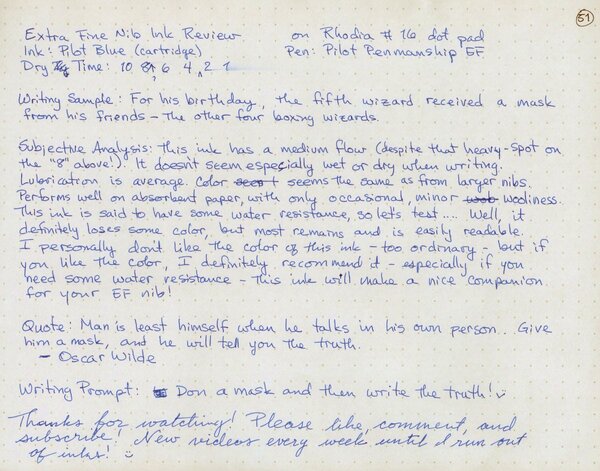 51
Extra Fine Nib Ink Review on Rhodia #16 dot pad
Ink: Pilot Blue (cartridge) Pen: Pilot Penmanship EF
Dry Time: 10 8 6 4 2 1
Writing Sample: For his birthday, the fifth wizard received a mask
from his friends - The other four boxing wizards.
Subjective Analysis: This ink has a medium flow (despite that heavy-spot
on the "8" above!). It doesn't seem especially wet or dry when writing.
Lubrication is average. Color seems the same as from larger nibs.
Performs well on absorbent paper, with only occasional, minor wooliness.
This ink is said to have some water resistance, so let's test.... Well, it
definitely loses some color, but most remains and is easily readable.
I personally don't like the color of this ink - too ordinary - but if
you like the color, I definitely recommend it - especially if you
need some water resistance - This ink will make a nice companion
for your EF nib!
Quote: Man is least himself when he talks in his own person... Give
him a mask, and he will tell you the truth.
- Oscar Wilde
Writing Prompt: Don a mask and then write the truth!
Thanks for watching! Please like, comment, and
subscribe! New videos every week until I run out
of inks!